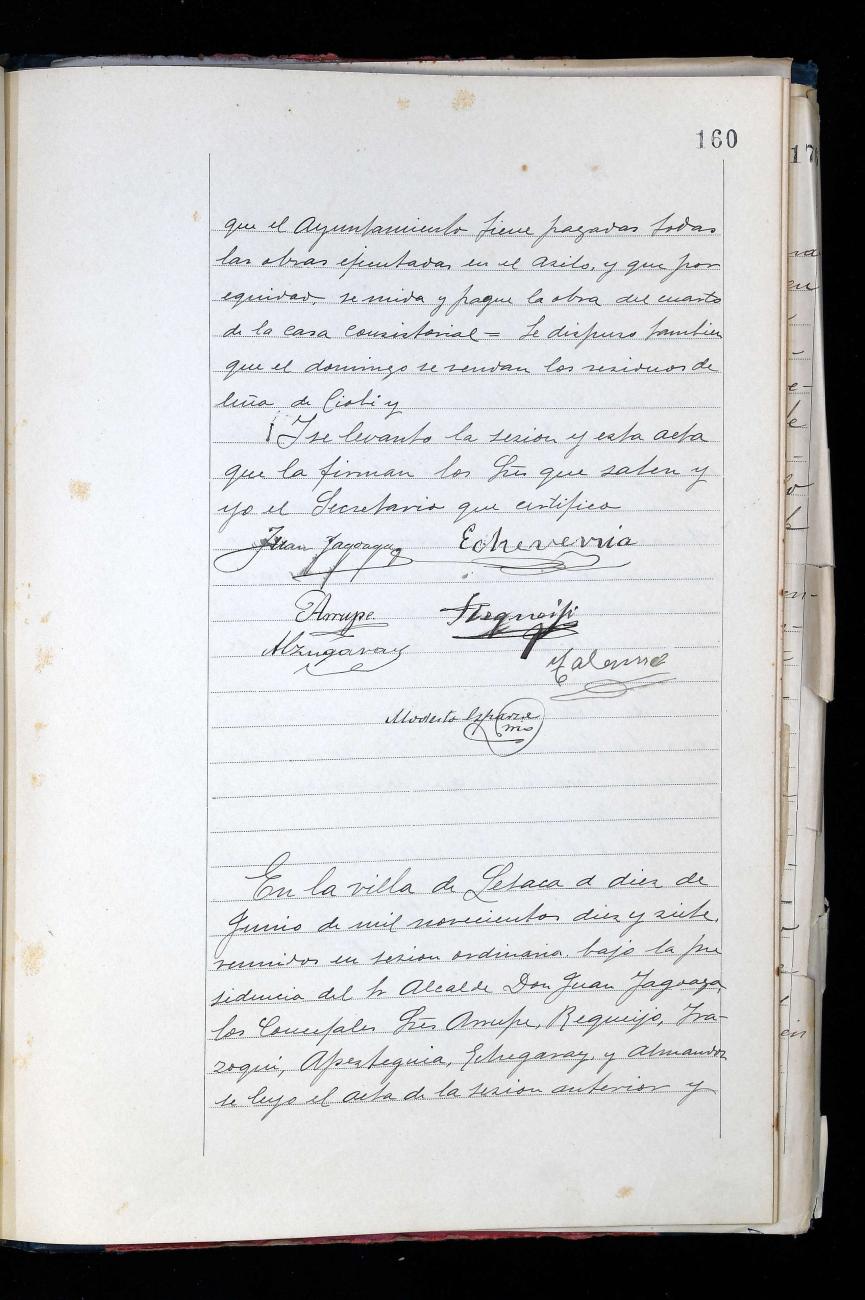 160
que el Ayuntamiento tiene pagadas todas
las obras ejecutadas en el asilo, y que por
equidad, se mida y pague la obra del cuarto
de la casa consistorial = Se dispuso tambien
que el domingo se vendan los residuos de
leña de
Y se levanto la sesion y esta acta
que la firman los Sres que saben y
yo el Secretario que certifico
Juan Echeverria
Arrupe
Alzugaray
Modesto
En la villa de Lesaca a diez de
Junio de mil novecientos diez y siete,
reunidos en sesion ordinaria bajo la pre
sidencia del Sr Alcalde Don Juan
los Concejales Sres Arrupe, Requeijo, Ira-
zoqui, Apesteguia, Echegaray, y Almandoz
se leyo el acta de la sesion anterior y